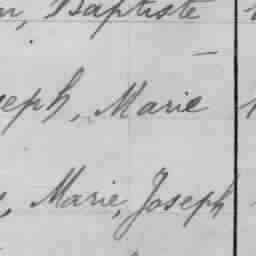 Baptiste
Marie
Marie, Joseph